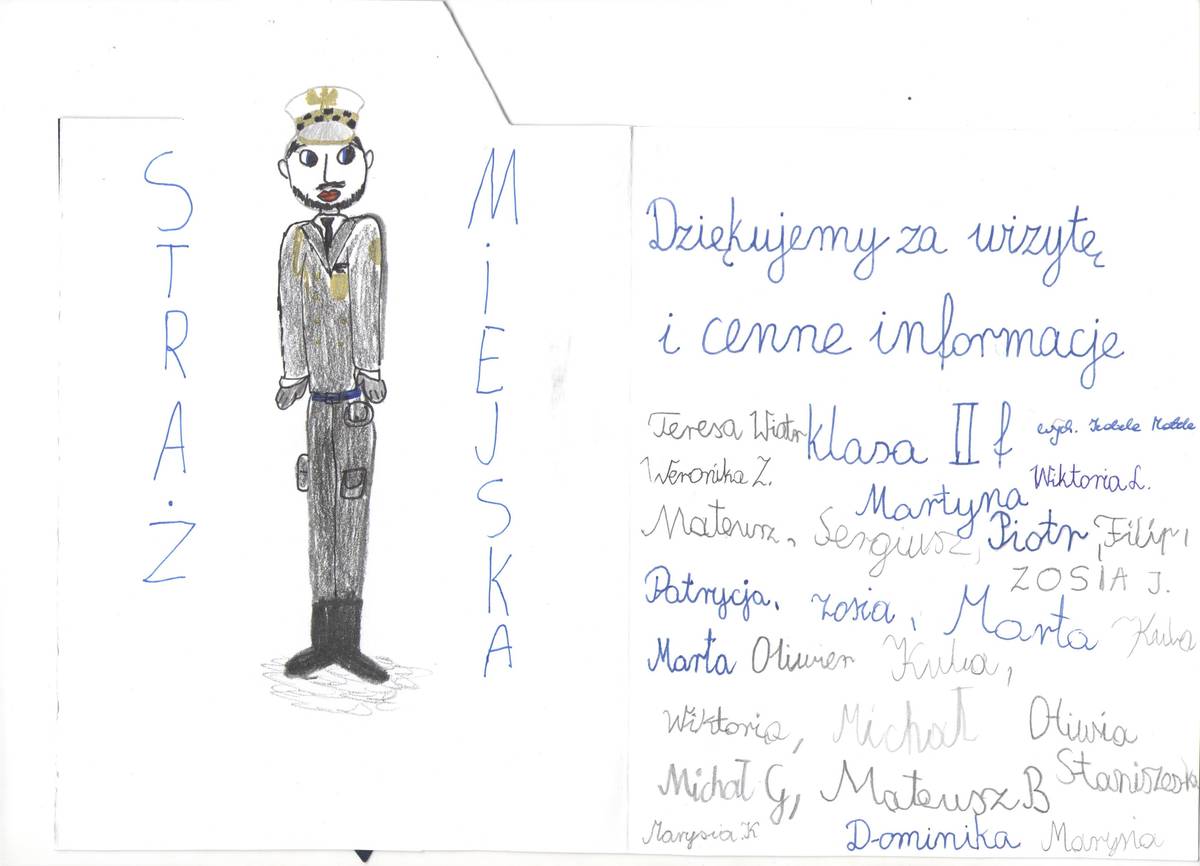 STRAŻ
MiEJSKA
Dziękujemy za wizytę
i cenne informacje
Teresa Wiatr klasa II f wych.
Weronika Z. Wiktoria L.
Martyna
Mateusz, Sergiusz, Piotr, Filip,
ZOSIA J.
Patrycja, Zosia, Marta Kuba
Marta Oliwier Kuba,
Wiktoria, Michał Oliwia
Michał G, Mateusz B
Marysia K Dominika Marysia